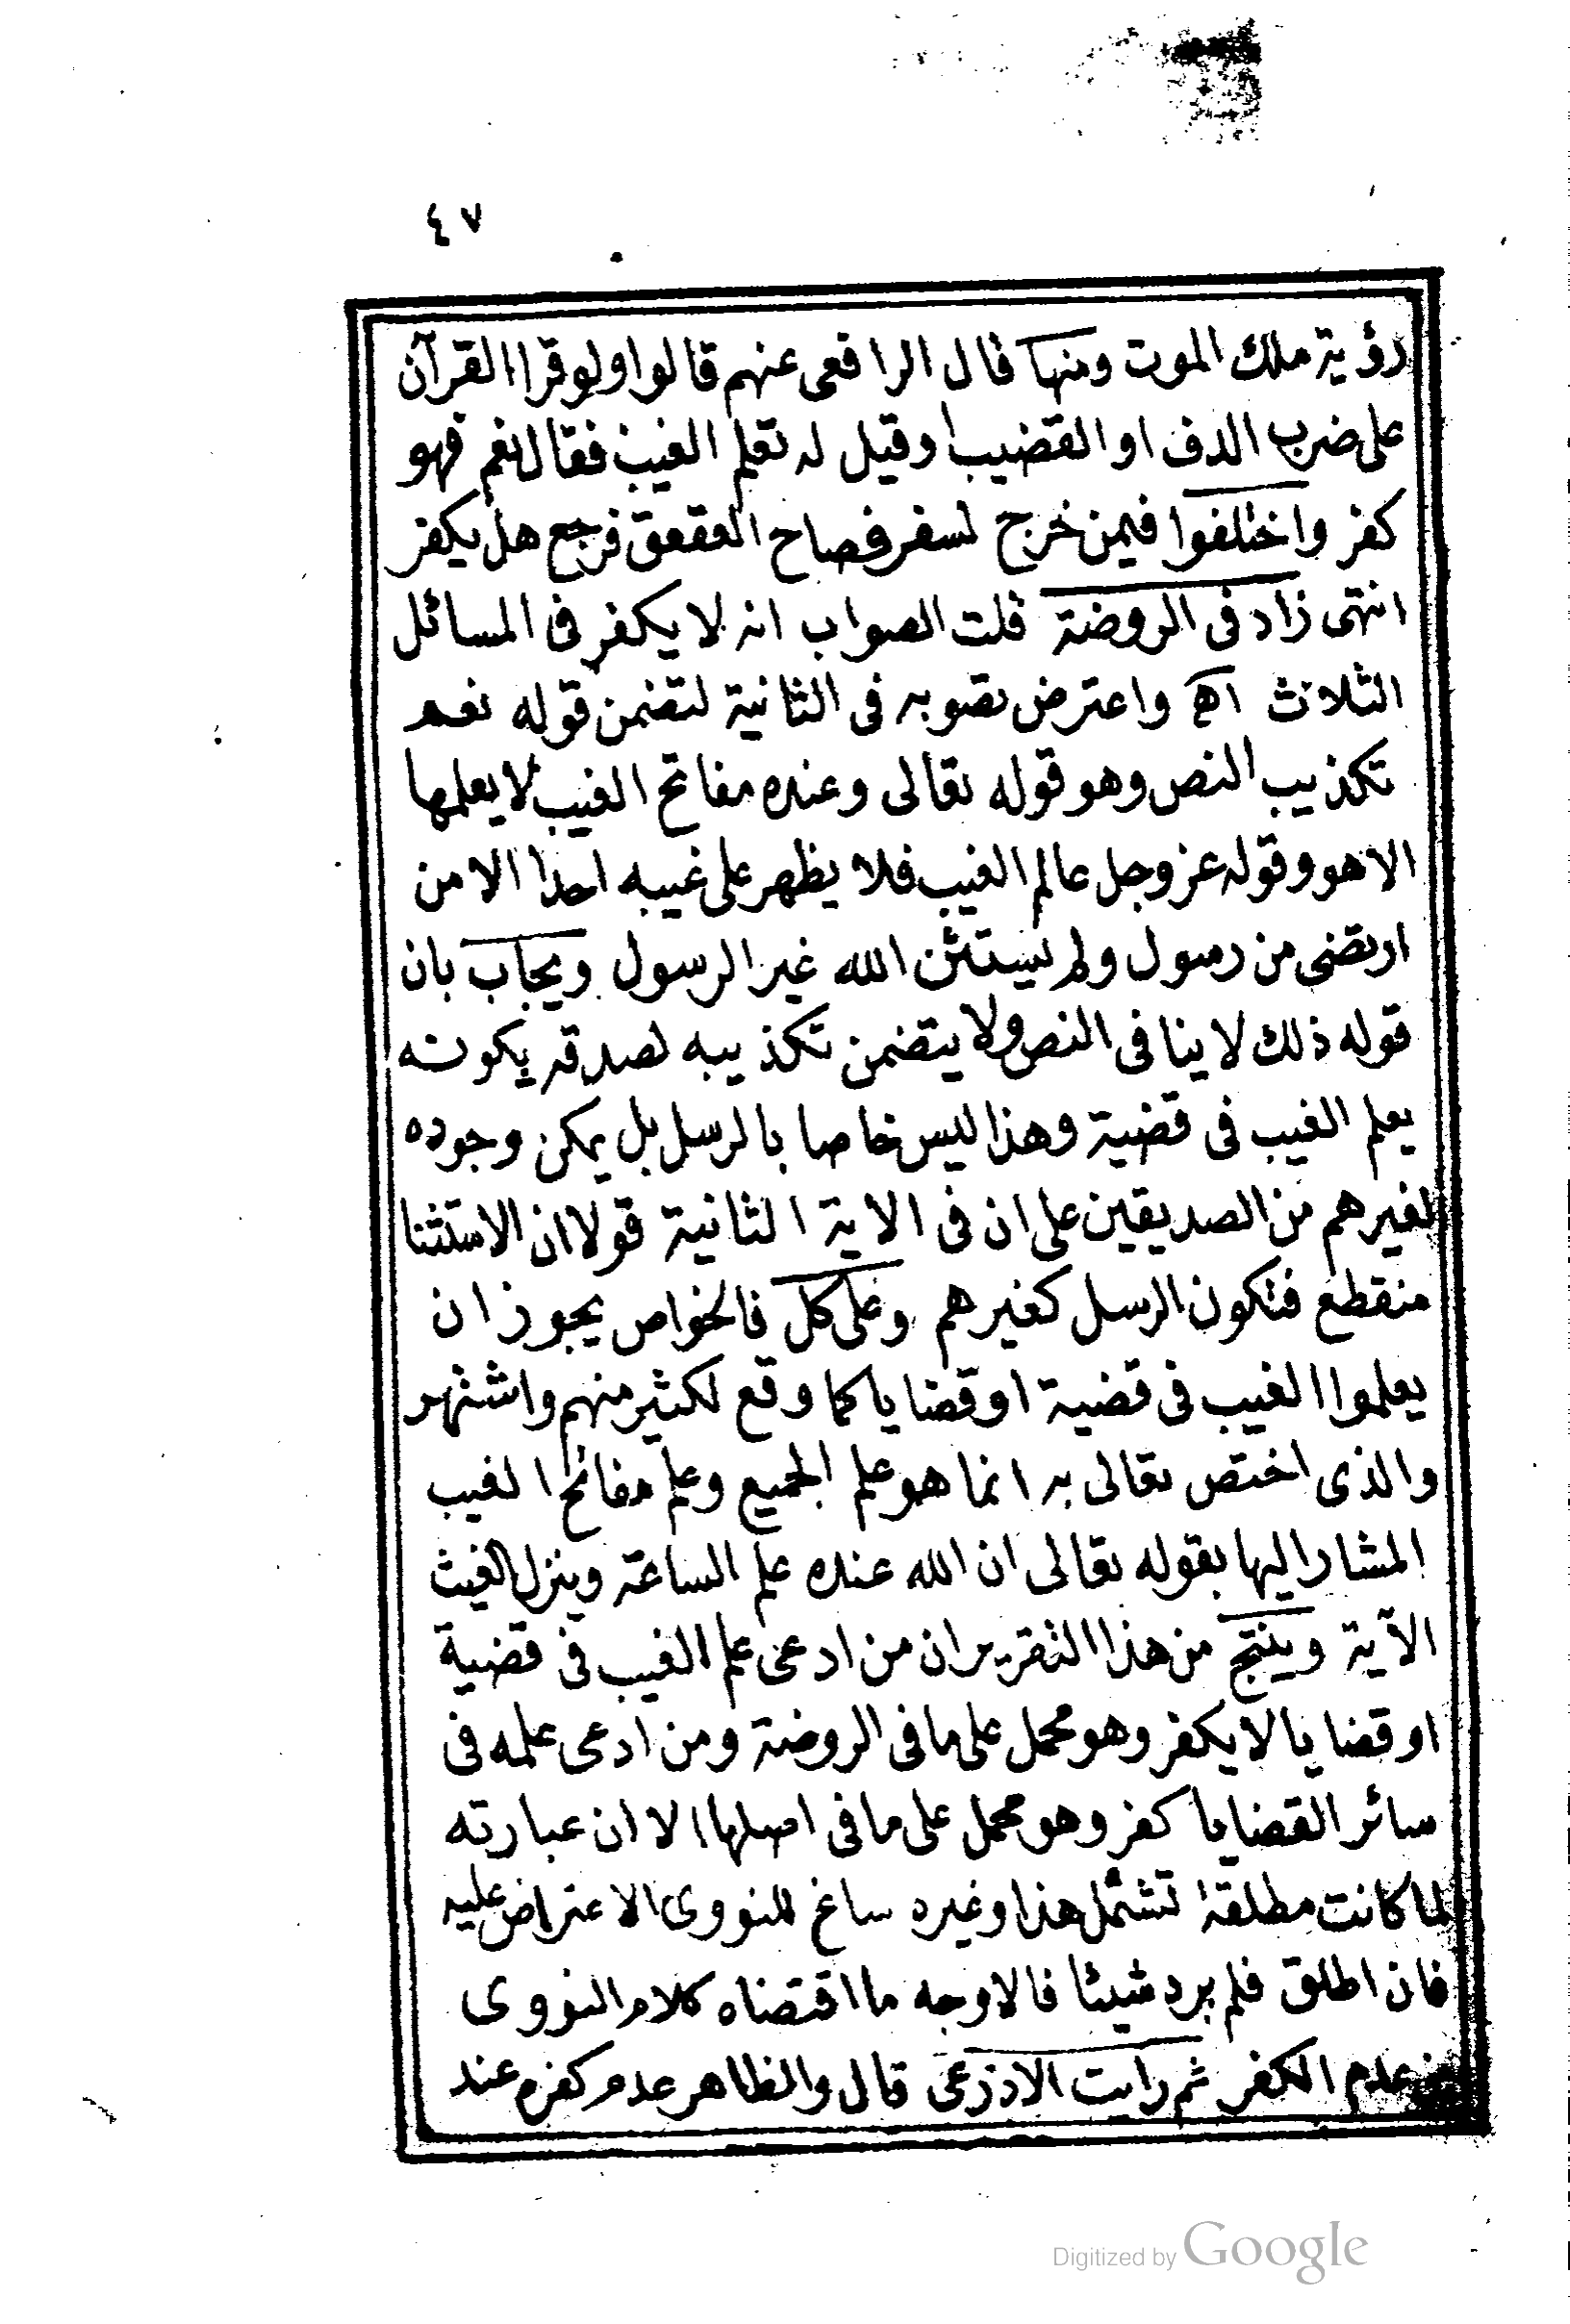 ٤٧
رؤية ملك الموت ومنها قال الرافعى عنهم قالوا ولو قرا القرآن
على ضرب الدف او القضيب او قيل له تعلم الغيب فقال نعم فهو
كفر واختلفوا فيمن خرج لسفر فصاح العقعق فرجع هل يكفر
انتهى زاد فى الروضة قلت الصواب انه لا يكفر فى المسائل
الثلاث اه واعترض تصوبه فى الثانية لتضمن قوله نعم
تكذيب النص وهو قوله تعالى وعنده مفاتح الغيب لا يعلمها
الا هو وقوله عز وجل عالم الغيب فلا يظهر على غيبه احدا الا من
ارتضى من رسول ولم يستثن الله غير الرسول ويجاب بان
قوله ذلك لا ينافى النص ولا يتضمن تكذيبه لصدقه بكونه
يعلم الغيب فى قضية وهذا ليس خاصا بالرسل بل يمكن وجوده
لغيرهم من الصديقين على ان فى الاية الثانية قولا ان الاستثنا
منقطع فتكون الرسل كغيرهم وعلى كل فالخواص يجوز ان
يعلموا الغيب فى قضية او قضايا كما وقع لكثير منهم واشتهر
والذى اختص تعالى به انما هو علم الجميع وعلم مفاتح الغيب
المشار اليها بقوله تعالى ان الله عنده علم الساعة وينزل الغيث
الآية وينتج من هذا التقرير ان من ادعى علم الغيب فى قضية
او قضايا لا يكفر وهو محمل على ما فى الروضة ومن ادعى علمه فى
سائر القضايا كفر وهو محمل على ما فى اصلها الا ان عبارته
لما كانت مطلقة تشتمل هذا وغيره ساغ للنووى الاعتراض عليه
فان اطلق فلم يرد شيئا فالاوجه ما اقتضاه كلام النووى
من عدم الكفر ثم رايت الاذرعى قال والظاهر عدم كفره عند
Digitized by Google